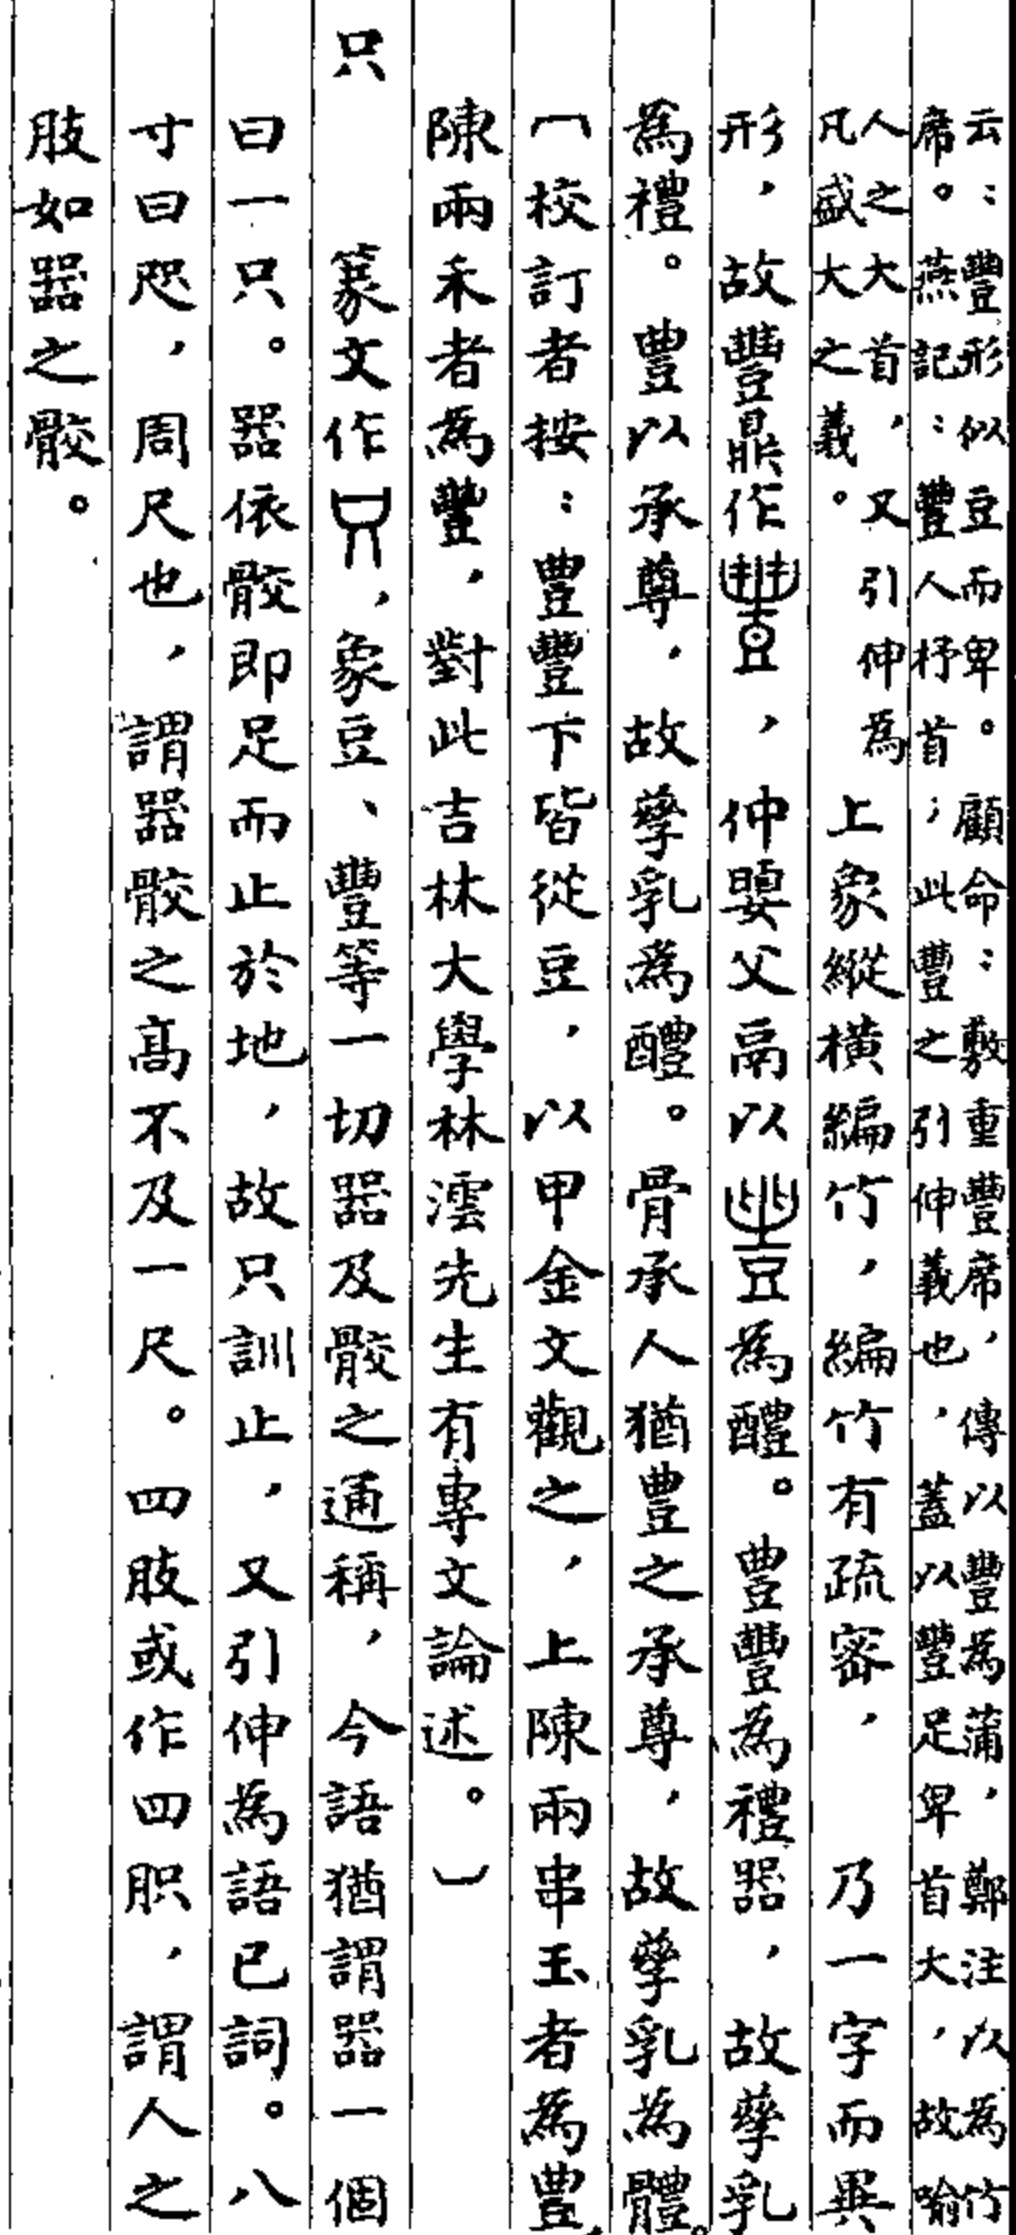 云：豐形似豆而卑。顧命：敷重豐席，傳以豐為蒲，鄭注以為竹
席。燕記：豐人杼首；此豐之引伸義也，蓋以豐足卑首大，故喻
人之大首，又引伸為
凡盛大之義。
上象縱橫編竹，編竹有疏密，乃一字而異
形，故豐鼎作，仲㛮父鬲以為醴。豊豐為禮器，故孳乳
為禮。豊以承尊，故孳乳為醴。骨承人猶豊之承尊，故孳乳為體。
〔校訂者按：豊豐下皆從豆，以甲金文觀之，上陳兩串玉者為豊，
陳兩禾者為豐，對此吉林大學林澐先生有專文論述。〕
只
篆文作，象豆、豐等一切器及骹之通稱，今語猶謂器一個
曰一只。器依骹即足而止於地，故只訓止，又引伸為語已詞。八
寸曰咫，周尺也，謂器骹之高不及一尺。四肢或作四胑，謂人之
肢如器之骹。